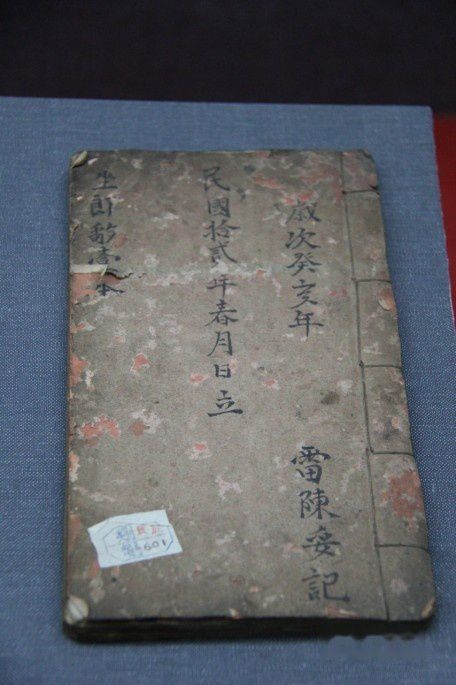 歲次癸亥年
雷陳妥記
民國拾貳年春月日立
坐郎歌壹本
601